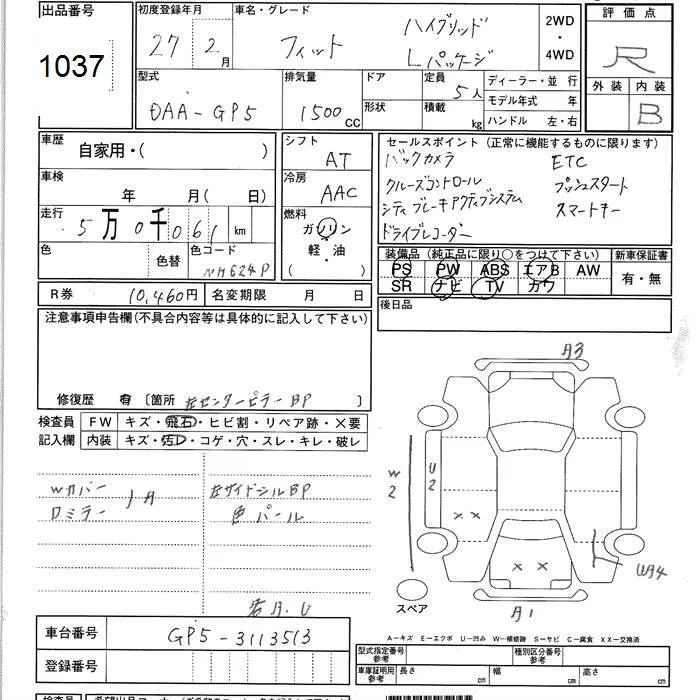 出品番号 初度登録年月 車名・グレード 2WD・4WD 評価点
1037 27年 2月 フィット ハイブリッド Lパッケージ R
外装 内装 B
型式 排気量 ドア 定員 5人 ディーラー・並行
DAA-GP5 1500cc 形状 積載 kg モデル年式 年
ハンドル 左・右
車歴 自家用・( )
シフト AT
車検 年 月( 日)
冷房 AAC
走行 5万0千061km
燃料 ガソリン 軽・油 ( )
色 色替 色コード NH624P
セールスポイント(正常に機能するものに限ります)
バックカメラ ETC
クルーズコントロール プッシュスタート
シティブレーキアクティブシステム スマートキー
ドライブレコーダー
装備品(純正品に限り○をつけて下さい) 新車保証書
PS PW ABS エアB AW 有・無
SR ナビ TV カワ
R券 10,460円 名変期限 月 日
後日品
注意事項申告欄(不具合内容等は具体的に記入して下さい)
修復歴 有 〔箇所 左センターピラーBP 〕
検査員 FW キズ・飛石・ヒビ割・リペア跡・×要
記入欄 内装 キズ・汚レ・コゲ・穴・スレ・キレ・破レ
Wカバー
ロミラー
左サイドシルBP
色 パール
A3
W2
U2
××
××
WA4
A1
スペア
車台番号 GP5-3113513
登録番号
A-キズ E-エクボ U-凹み W-補修跡 S-サビ C-腐食 XX-交換済
型式指定番号 参考 種別区分番号 参考
車庫証明用 参考 長さ cm 幅 cm 高さ cm
検査員